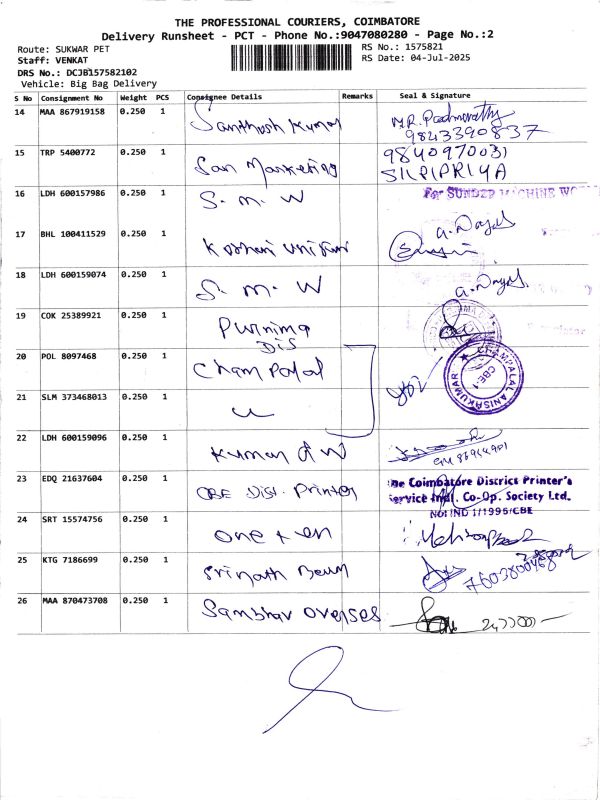 THE PROFESSIONAL COURIERS, COIMBATORE
Delivery Runsheet - PCT - Phone No.:9047080280 - Page No.:2
Route: SUKWAR PET
RS No.: 1575821
Staff: VENKAT
RS Date: 04-Jul-2025
DRS No.: DCJB157582102
Vehicle: Big Bag Delivery
S No Consignment No Weight PCS Consignee Details Remarks Seal & Signature
14 MAA 867919158 0.250 1 Santhosh Kumar M.R. Padmavathy
9843390837
15 TRP 5400772 0.250 1 San Marketing 9840970031
SILPIPRIYA
16 LDH 600157986 0.250 1 S. M. W For SUNDER MACHINE WO
17 BHL 100411529 0.250 1
18 LDH 600159074 0.250 1 S. M. W
19 COK 25389921 0.250 1 Purnima
Dis
20 POL 8097468 0.250 1 Champalal CHAMPALAL ANISHKUMAR
CBE-1
21 SLM 373468013 0.250 1
22 LDH 600159096 0.250 1 Kumar
23 EDQ 21637604 0.250 1 CBE Dist. Printer The Coimbatore District Printer's
Service Indl. Co-Op. Society Ltd.
NO: IND 1/1996/CBE
24 SRT 15574756 0.250 1 One + en
25 KTG 7186699 0.250 1 Srinath 7603800468
26 MAA 870473708 0.250 1 Sambhav Overses